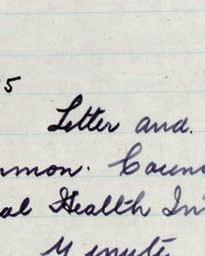 5
Letter and.
mmon. Counc
al Health In
Minute